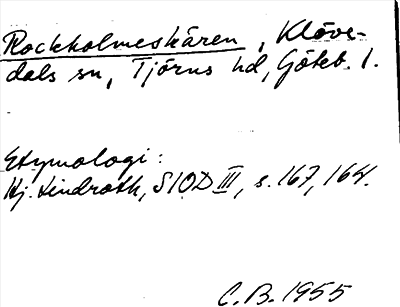 Rockholmeskären, Klöve-
dals sn, Tjörns hd, Göteb. l.
Etymologi:
Hj. Lindroth, SIOD III, s. 167, 164.
C.B. 1955